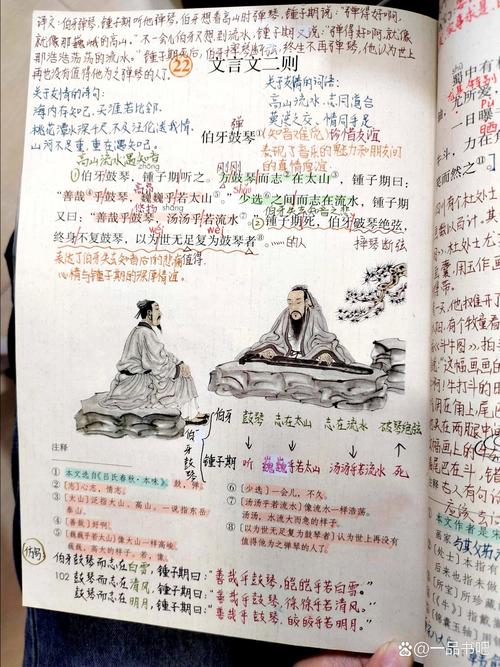 译文:伯牙弹琴,锺子期听他弹琴,伯牙想着高山时弹琴,锺子期说:"弹得好啊,
就像那巍峨的高山。"不一会儿伯牙又想到流水,锺子期又说:"弹得好啊,就像
那浩浩荡荡的流水。"锺子期死后,伯牙摔琴断弦,终生不再弹琴,他认为世上
再也没有值得他为之弹琴的人了。
22 文言文二则
关于友情的诗句:
海内存知己,天涯若比邻
桃花潭水深千尺,不及汪伦送我情
山河不足重,重在遇知己。
关于友情的词语:
高山流水 志同道合
莫逆之交 情同手足
知音难觅 珍惜友谊
弹
伯牙鼓琴①
表现了音乐的魅力和朋友间
的真情厚谊
高山流水遇知音
zhōng
刚刚
伯牙鼓琴,锺子期听之。方鼓琴而志②在太山③,锺子期曰:
"善哉④乎鼓琴,巍巍乎若太山⑤。"少选⑥之间而志在流水,锺子期
又曰:"善哉乎鼓琴,汤汤乎若流水⑦。"锺子期死,伯牙破琴绝弦,
终身不复鼓琴,以为世无足复为鼓琴者⑧。
shāo
wéi
wèi
值得
……的人
摔琴断弦
表达了伯牙失去知音后的悲痛
心情与锺子期的深厚情谊。
伯牙 鼓琴 志在太山 志在流水 破琴绝弦
伯牙鼓琴
锺子期 听 巍巍乎若太山 汤汤乎若流水 死
注释
① 本文选自《吕氏春秋·本味》。鼓,弹。
② 〔志〕心志,情志。
③ 〔太山〕泛指大山、高山。一说指东岳
泰山。
④ 〔善哉〕好啊。
⑤ 〔巍巍乎若太山〕像大山一样高峻。
巍巍,高大的样子。若,像。
⑥ 〔少选〕一会儿,不久。
⑦ 〔汤汤乎若流水〕像流水一样浩荡。
汤汤,水流大而急的样子。
⑧ 〔以为世无足复为鼓琴者〕认为世上再没有
值得他为之弹琴的人了。
仿写
伯牙鼓琴而志在白雪,锺子期曰:"善哉乎鼓琴,皑皑乎若白雪。"
102
鼓琴而志在清风,锺子期曰:"善哉乎鼓琴,徐徐乎若清风。"
鼓琴而志在明月,锺子期曰:"善哉乎鼓琴,皎皎乎若明月。"
蜀中有杜
一日曝
@一品书吧